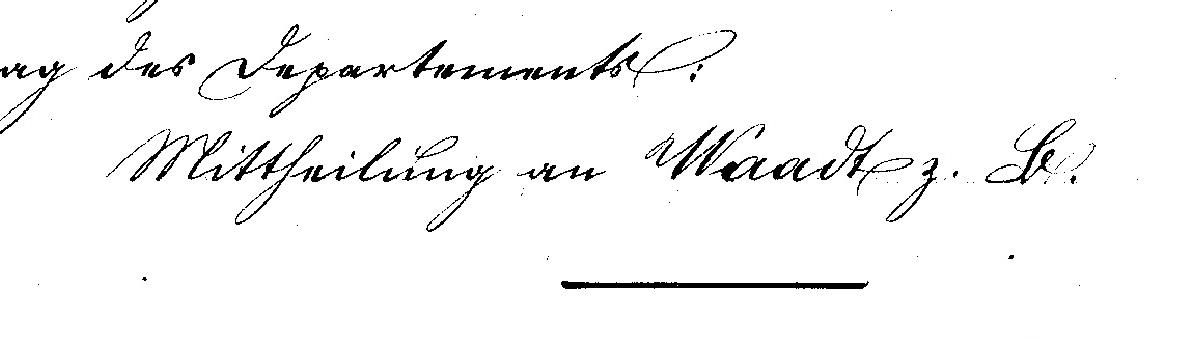 ag des Departements:
Mittheilung an Waadt z. B.